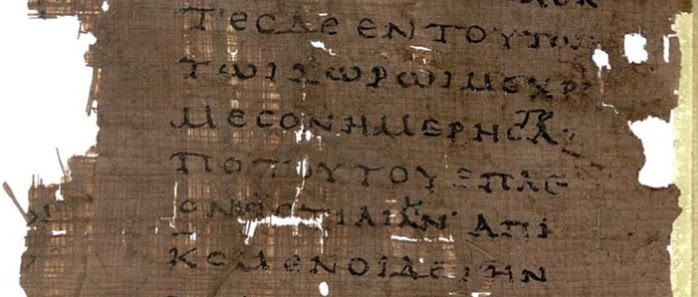 ΤΕϹΔΕΕΝΤΟΥΤΩΙ
ΤΩΙΧΩΡΩΙΜΕΧΡΙ
ΜΕϹΟΝΗΜΕΡΗϹΑ
ΠΟΤΟΥΤΟΥΕΠΛΕ
ΑΠΙ
ΚΟΜΕΝΟΙΔΕΤΗΝ